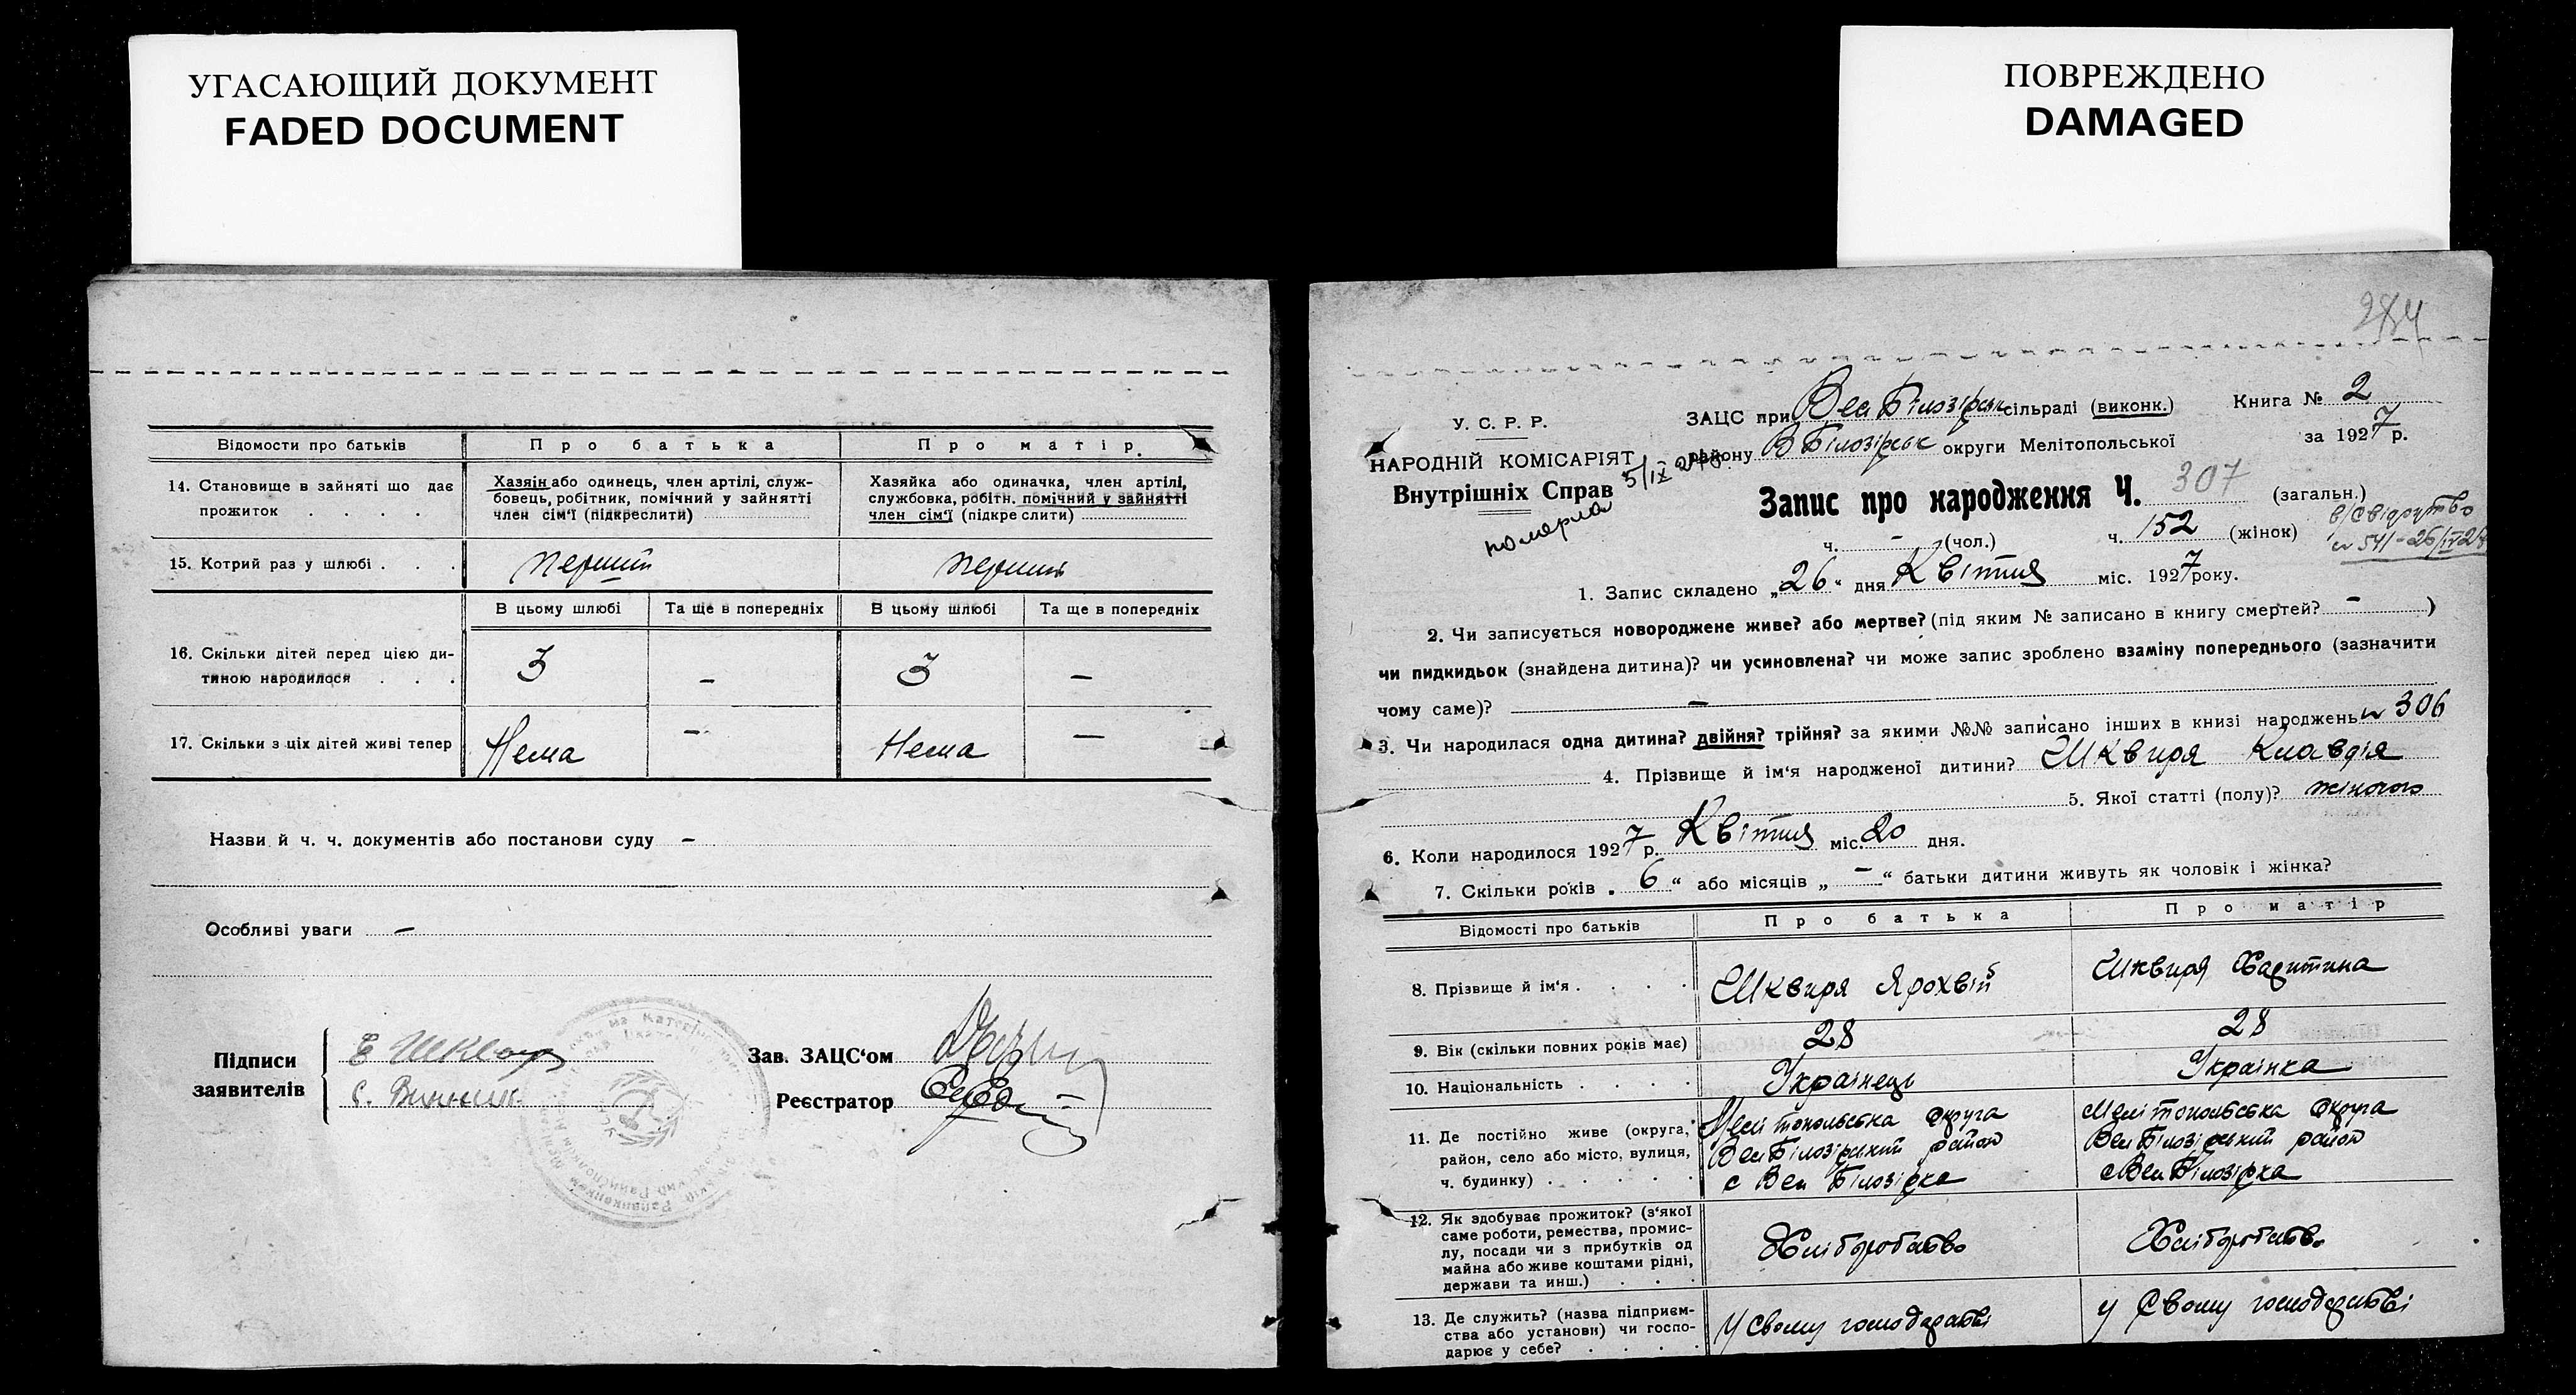 УГАСАЮЩИЙ ДОКУМЕНТ
FADED DOCUMENT
ПОВРЕЖДЕНО
DAMAGED
Відомости про батьків
Про батька
Про матір.
14. Становище в зайняті що дає прожиток . . . .
Хазяін або одинець, член артілі, служ-
бовець, робітник, помічний у зайнятті
член сім'ї (підкреслити)
Хазяйка або одиначка, член артілі,
службовка, робітн. помічний у зайнятті
член сім'ї (підкреслити)
15. Котрий раз у шлюбі . . .
перший
перший
В цьому шлюбі
Та ще в попередніх
В цьому шлюбі
Та ще в попередніх
16. Скільки дітей перед цією ди-
тиною народилося . . .
3
–
3
–
17. Скільки з ціх дітей живі тепер
Нема
–
Нема
–
Назви й ч. ч. документів або постанови суду –
Особливі уваги –
Підписи
заявителів
С. Винник
Зав. ЗАЦС'ом
Реєстратор
284
У. С. Р. Р.
НАРОДНІЙ КОМІСАРІЯТ
Внутрішніх Справ
померла
5/IX
ЗАЦС при Вел Білозірськ сільраді (виконк.)
Книга № 2
району В Білозірськ округи Мелітопольської
за 1927 р.
Запис про народження Ч. 307 (загальн.)
ч. – (чол.) ч. 152 (жінок)
в/свідоцтво
№ 541 - 26/IV 27
1. Запис складено „26“ дня Квітня міс. 1927 року.
2. Чи записується новороджене живе? або мертве? (під яким № записано в книгу смертей? – )
чи пидкидьок (знайдена дитина)? чи усиновлена? чи може запис зроблено взаміну попереднього (зазначити
чому саме)? –
3. Чи народилася одна дитина? двійня? трійня? за якими №№ записано інших в книзі народжень № 306
4. Прізвище й ім'я народженої дитини? Шквиря Клавдія
5. Якої статті (полу)? жіночого
6. Коли народилося 1927 р. Квітня міс. 20 дня.
7. Скільки років „ 6 “ або місяців „ – “ батьки дитини живуть як чоловік і жінка?
Відомості про батьків
Про батька
Про матір
8. Прізвище й ім'я . . . .
Шквиря Ярохвій
Шквиря Харитина
9. Вік (скільки повних років має)
28
28
10. Національність . . . .
Українець
Українка
11. Де постійно живе (округа,
район, село або місто, вулиця,
ч. будинку) . . . . .
Мелітопольська округа
Вел Білозірський район
с Вел Білозірка
Мелітопольська округа
Вел Білозірський район
с Вел Білозірка
12. Як здобуває прожиток? (з'якої
саме роботи, ремества, промис-
лу, посади чи з прибутків од
майна або живе коштами рідні,
держави та инш.) . . .
Хліборобство
Хліборобство
13. Де служить? (назва підприєм-
ства або установи) чи госпо-
дарює у себе? . . . .
У Свому господарстві
у Свому господарстві